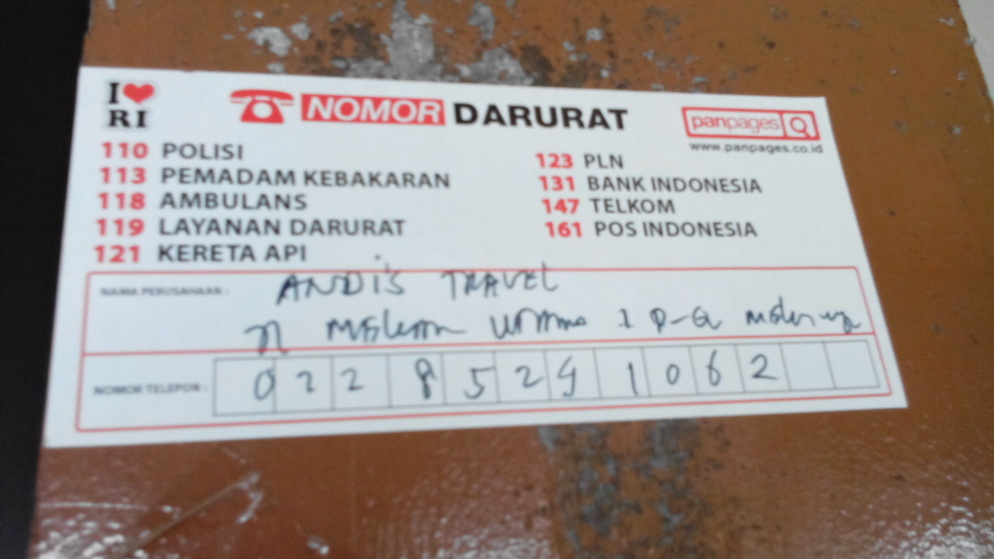 I ❤ RI
NOMOR DARURAT
panpages
www.panpages.co.id
110 POLISI
113 PEMADAM KEBAKARAN
118 AMBULANS
119 LAYANAN DARURAT
121 KERETA API
123 PLN
131 BANK INDONESIA
147 TELKOM
161 POS INDONESIA
NAMA PERUSAHAAN :
ANDI'S TRAVEL
NOMOR TELEPON :